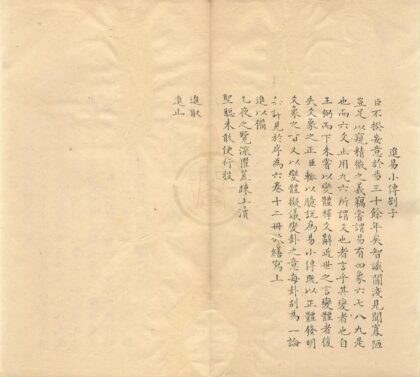 進易小傳劄子
臣不揆妄意於易三十餘年矣智識闇淺見聞寡陋
豈足以窺精微之義竊嘗謂易有四象六七八九是
也而六爻止用九六所謂爻也者言乎其變者也自
王弼而下未嘗以變體釋爻辭近世之言變體者復
失爻象之正臣輒以臆說為易小傳既以正體發明
爻象之旨又以變體擬議變卦之意每卦別為一論
見於序為六卷十二冊繕寫上
進以備
乙夜之覽深懼荒疎上瀆
聖聰未敢便行投
進取
進止